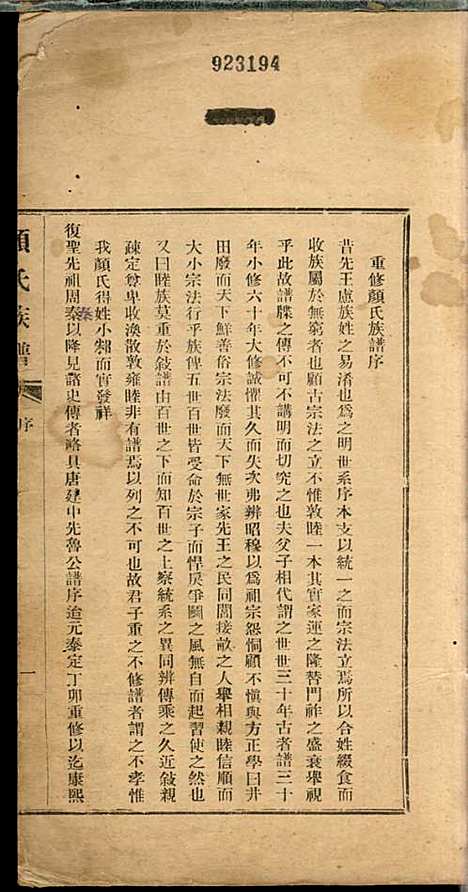 923194
重修顏氏族譜序
昔先王慮族姓之易淆也為之明世系序本支以統一之而宗法立焉所以合姓綴食而
收族屬於無窮者也顧古宗法之立不惟敦睦一本其實家運之隆替門祚之盛衰舉視
乎此故譜牒之傳不可不講明而切究之也夫父子相代謂之世世三十年古者譜三十
年小修六十年大修誠懼其久而失次弗辨昭穆以為祖宗怨恫顧不慎與方正學曰井
田廢而天下鮮善俗宗法廢而天下無世家先王之民同閭接畝之人舉相親睦信順而
大小宗法行乎族俾五世百世皆受命於宗子而悍戾爭鬭之風無自而起習使之然也
又曰睦族莫重於敍譜由百世之下而知百世之上察統系之異同辨傳乘之久近敍親
疎定尊卑收渙散敦雍睦非有譜焉以列之不可也故君子重之不修譜者謂之不孝惟
我顏氏得姓小邾而實發祥
復聖先祖周秦以降見諸史傳者略具唐建中先魯公譜序迨元泰定丁卯重修以迄康熙
秦
顏氏族譜
序
一